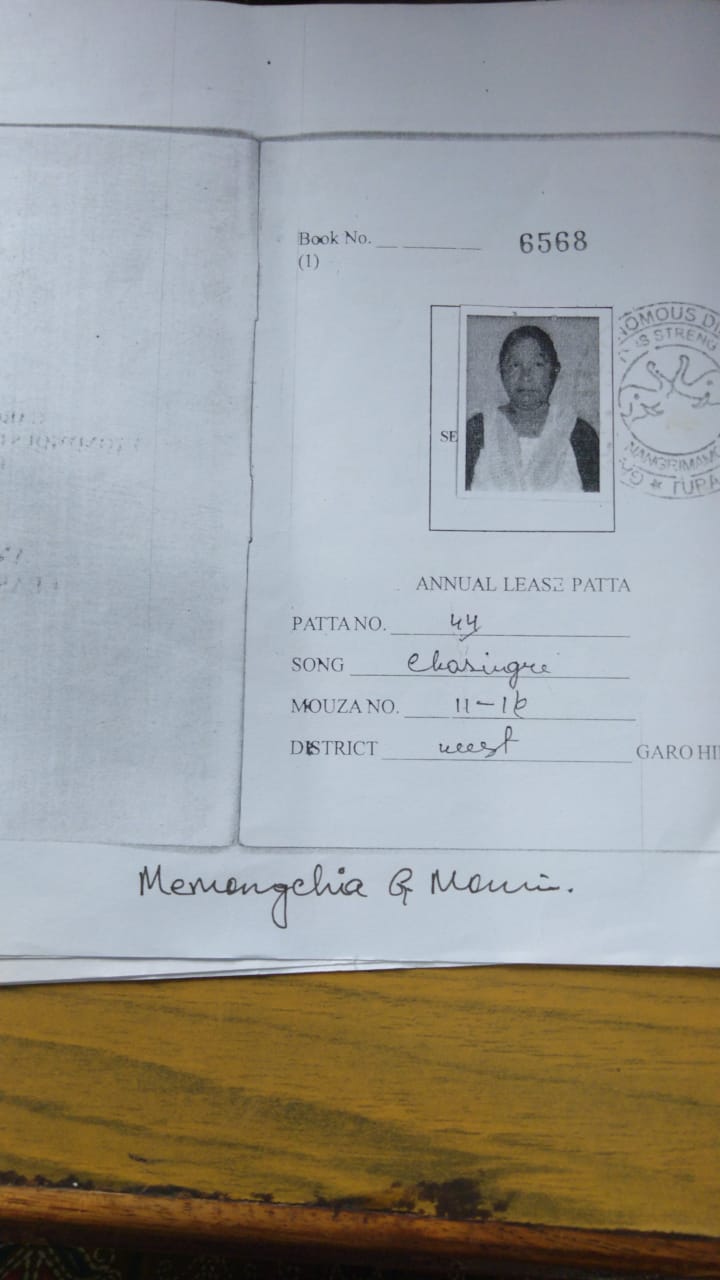 Book No. 6568
(1)
OMOUS DI
IS STRENG
SE
TURA
ANNUAL LEASE PATTA
PATTA NO. 44
SONG Chasingre
MOUZA NO. 11-
DISTRICT west GARO HI
Memongchia G Momin.